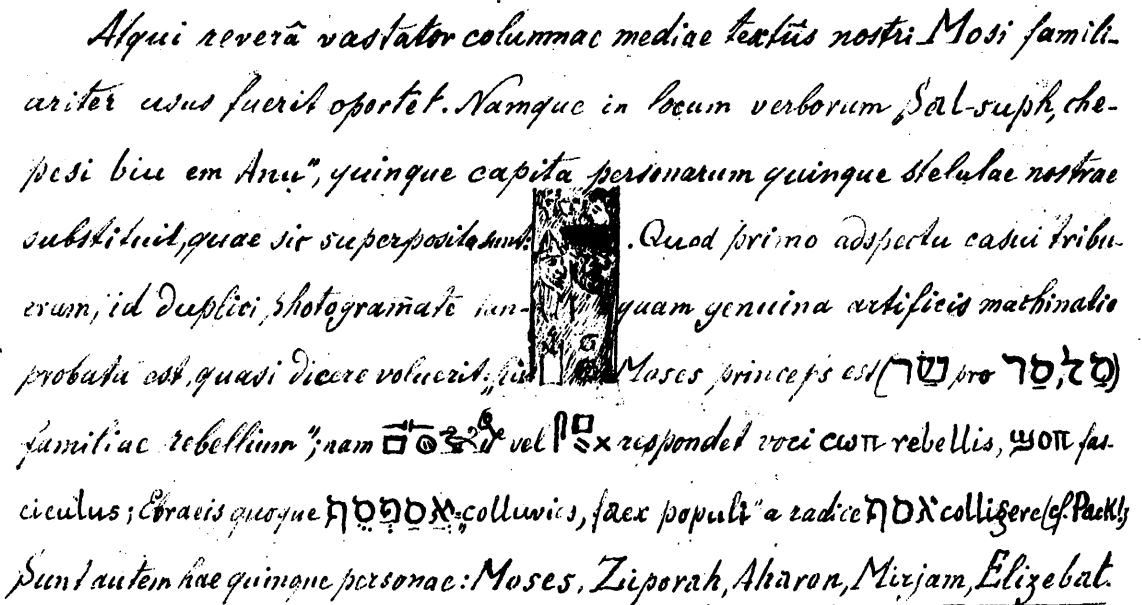 Atqui reverâ vastator columnae mediae textûs nostri Mosi famili-
ariter usus fuerit oportet. Namque in locum verborum „Sal-suph, che-
pesi biu em Anu", quinque capita personarum quinque stelulae nostrae
substituit, quae sic superposita sunt: . Quod primo adspectu casui tribu-
erum, id duplici photogramate tan- quam genuina artificis machinatio
probata est, quasi dicere voluerit: „hic Moses princeps est (שַׂר pro סַר, סַל)
familiae rebellium"; nam vel respondet voci ⲥⲱⲡ rebellis, ϣⲟⲡ fas-
ciculus; Ebraeis quoque אֲסַפְסֻף „colluvies, faex populi" a radice אסף colligere (cf. Pack!)
Sunt autem hae quinque personae: Moses, Ziporah, Aharon, Mirjam, Elizebat.